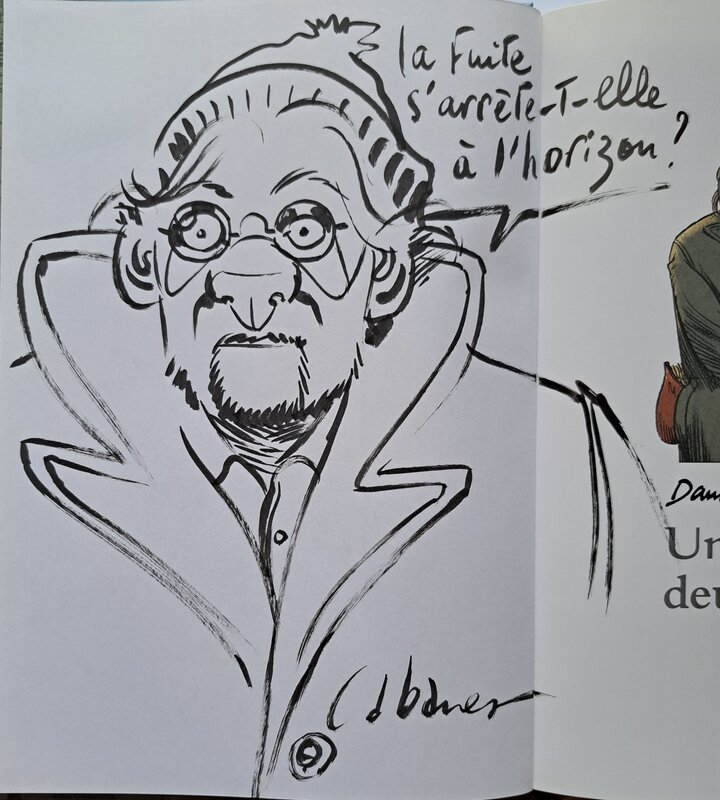 la fuite
s'arrête-t-elle
à l'horizon?
Cabanes
Un